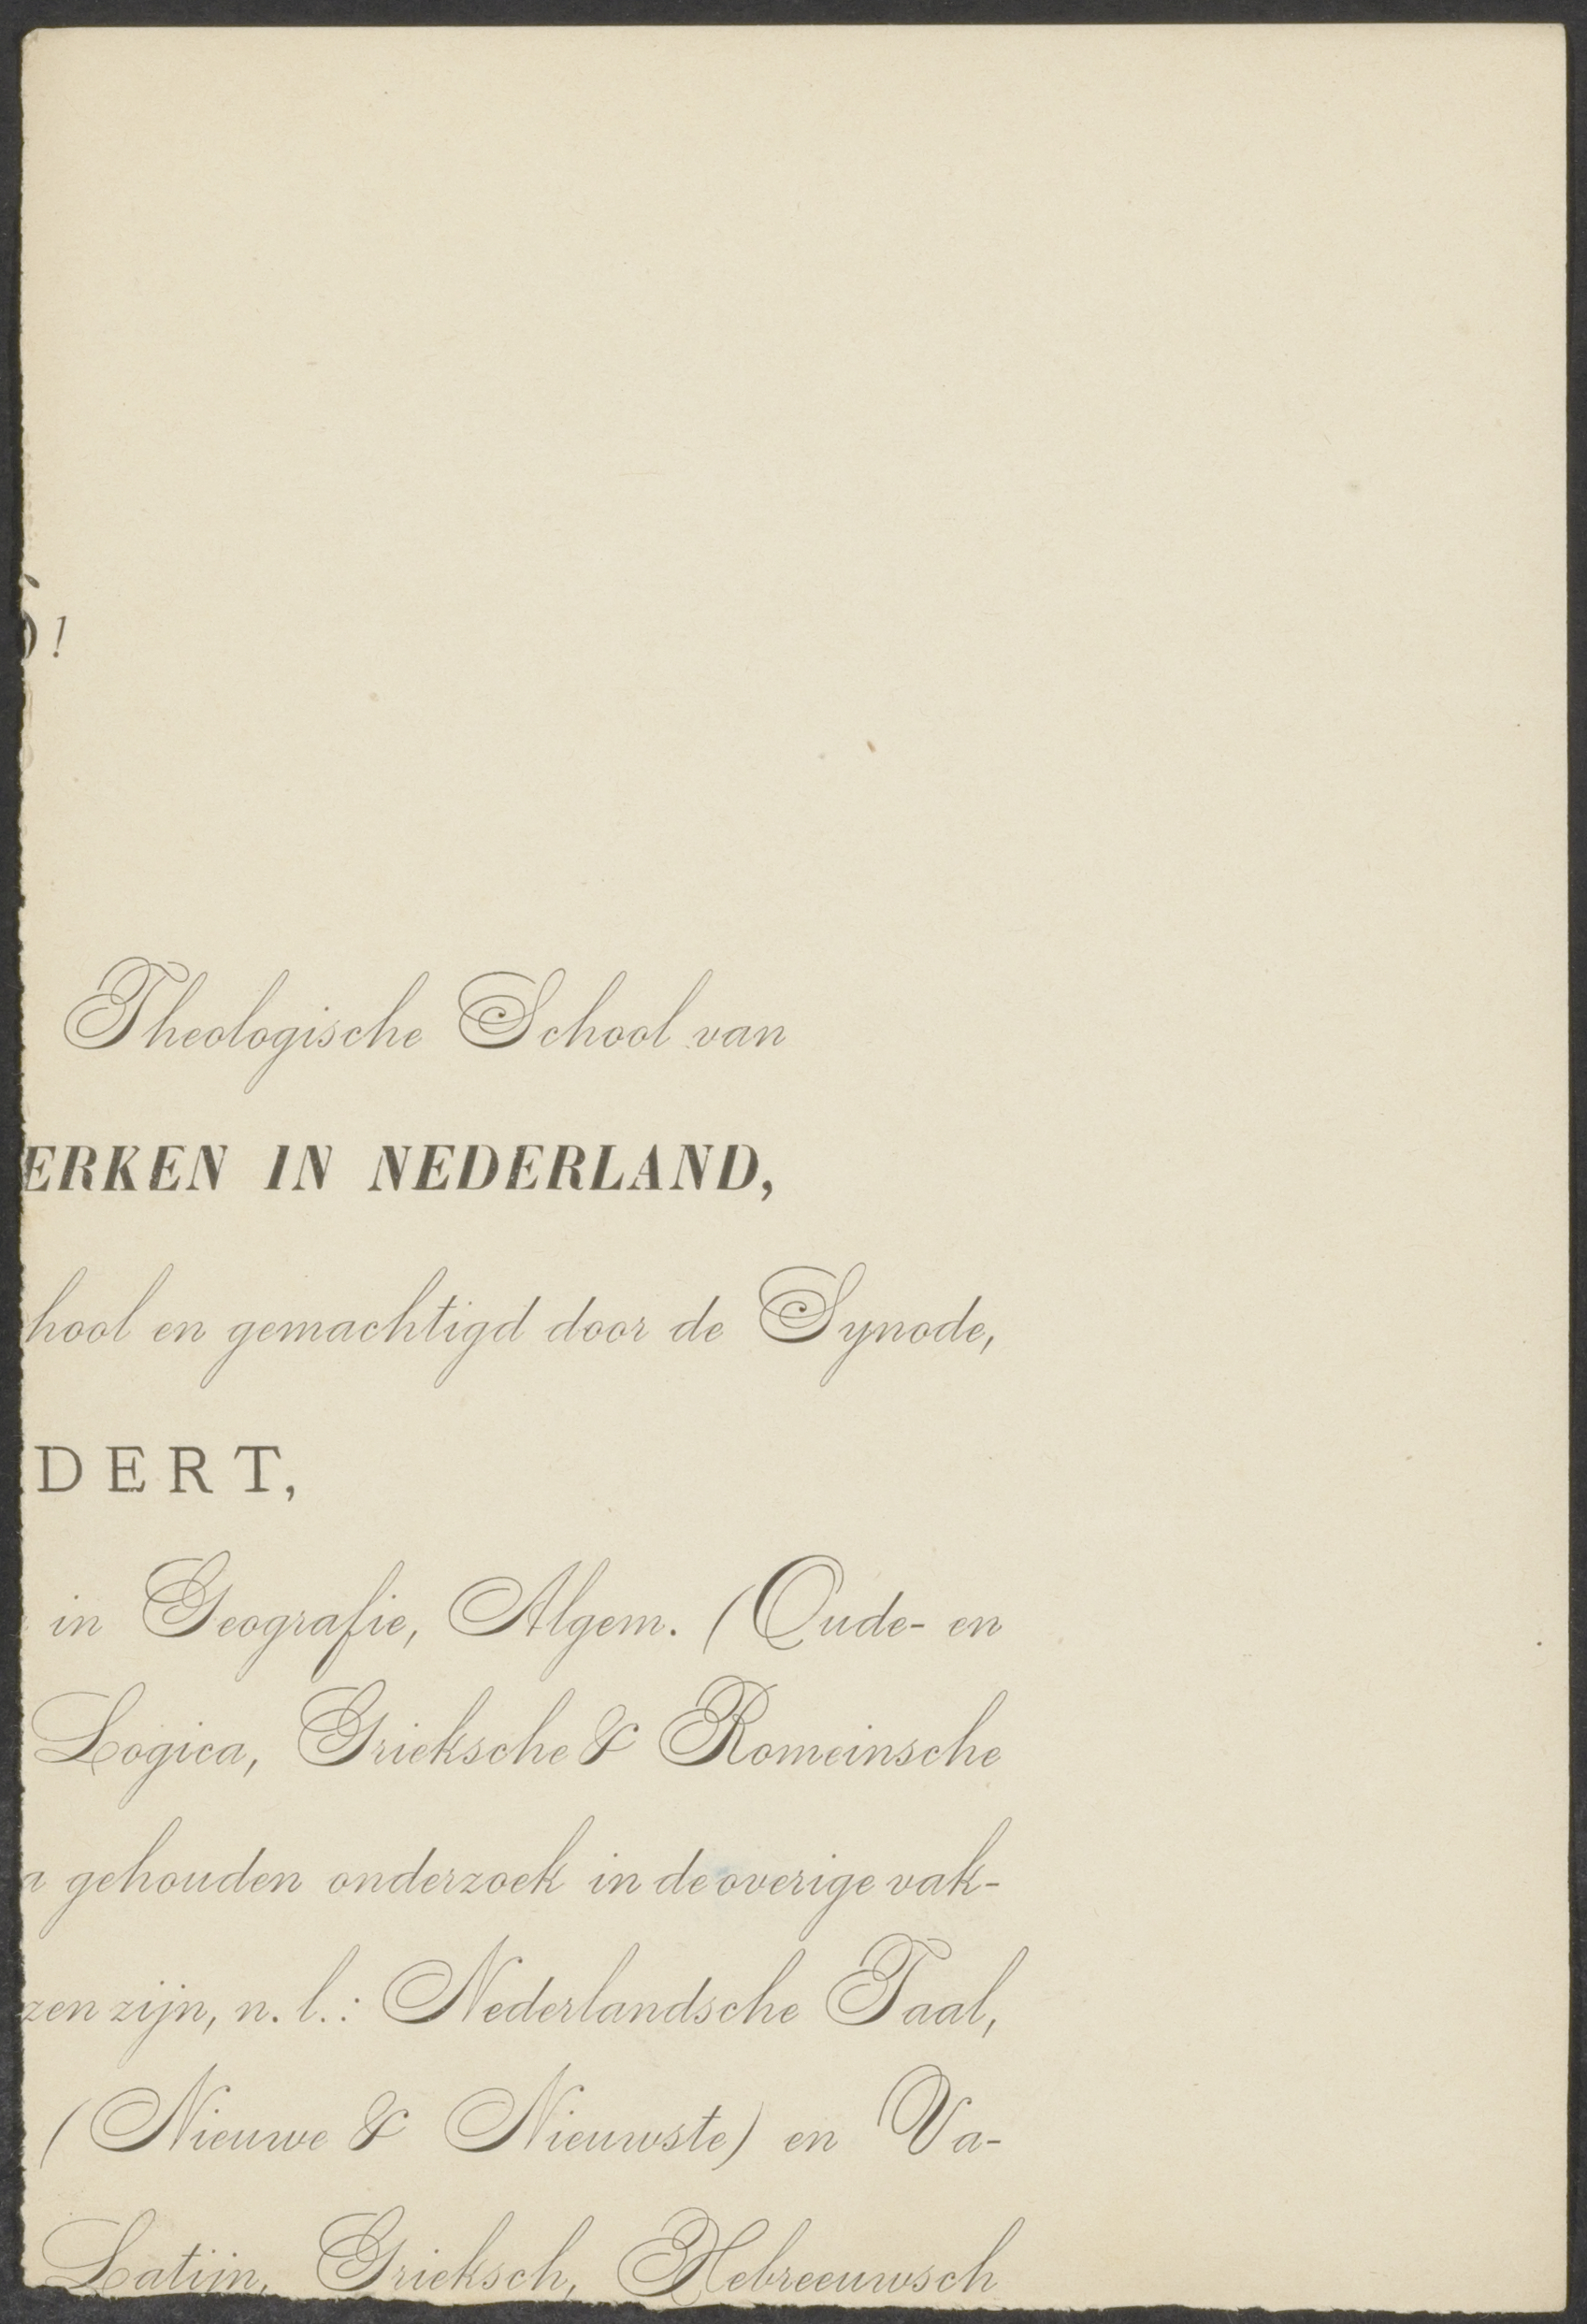 !
Theologische School van
ERKEN IN NEDERLAND,
hool en gemachtigd door de Synode,
DERT,
in Geografie, Algem. (Oude- en
Logica, Grieksche & Romeinsche
gehouden onderzoek in de overige vak-
zen zijn, n. l.: Nederlandsche Taal,
(Nieuwe & Nieuwste) en Va-
Latijn, Grieksch, Hebreeuwsch